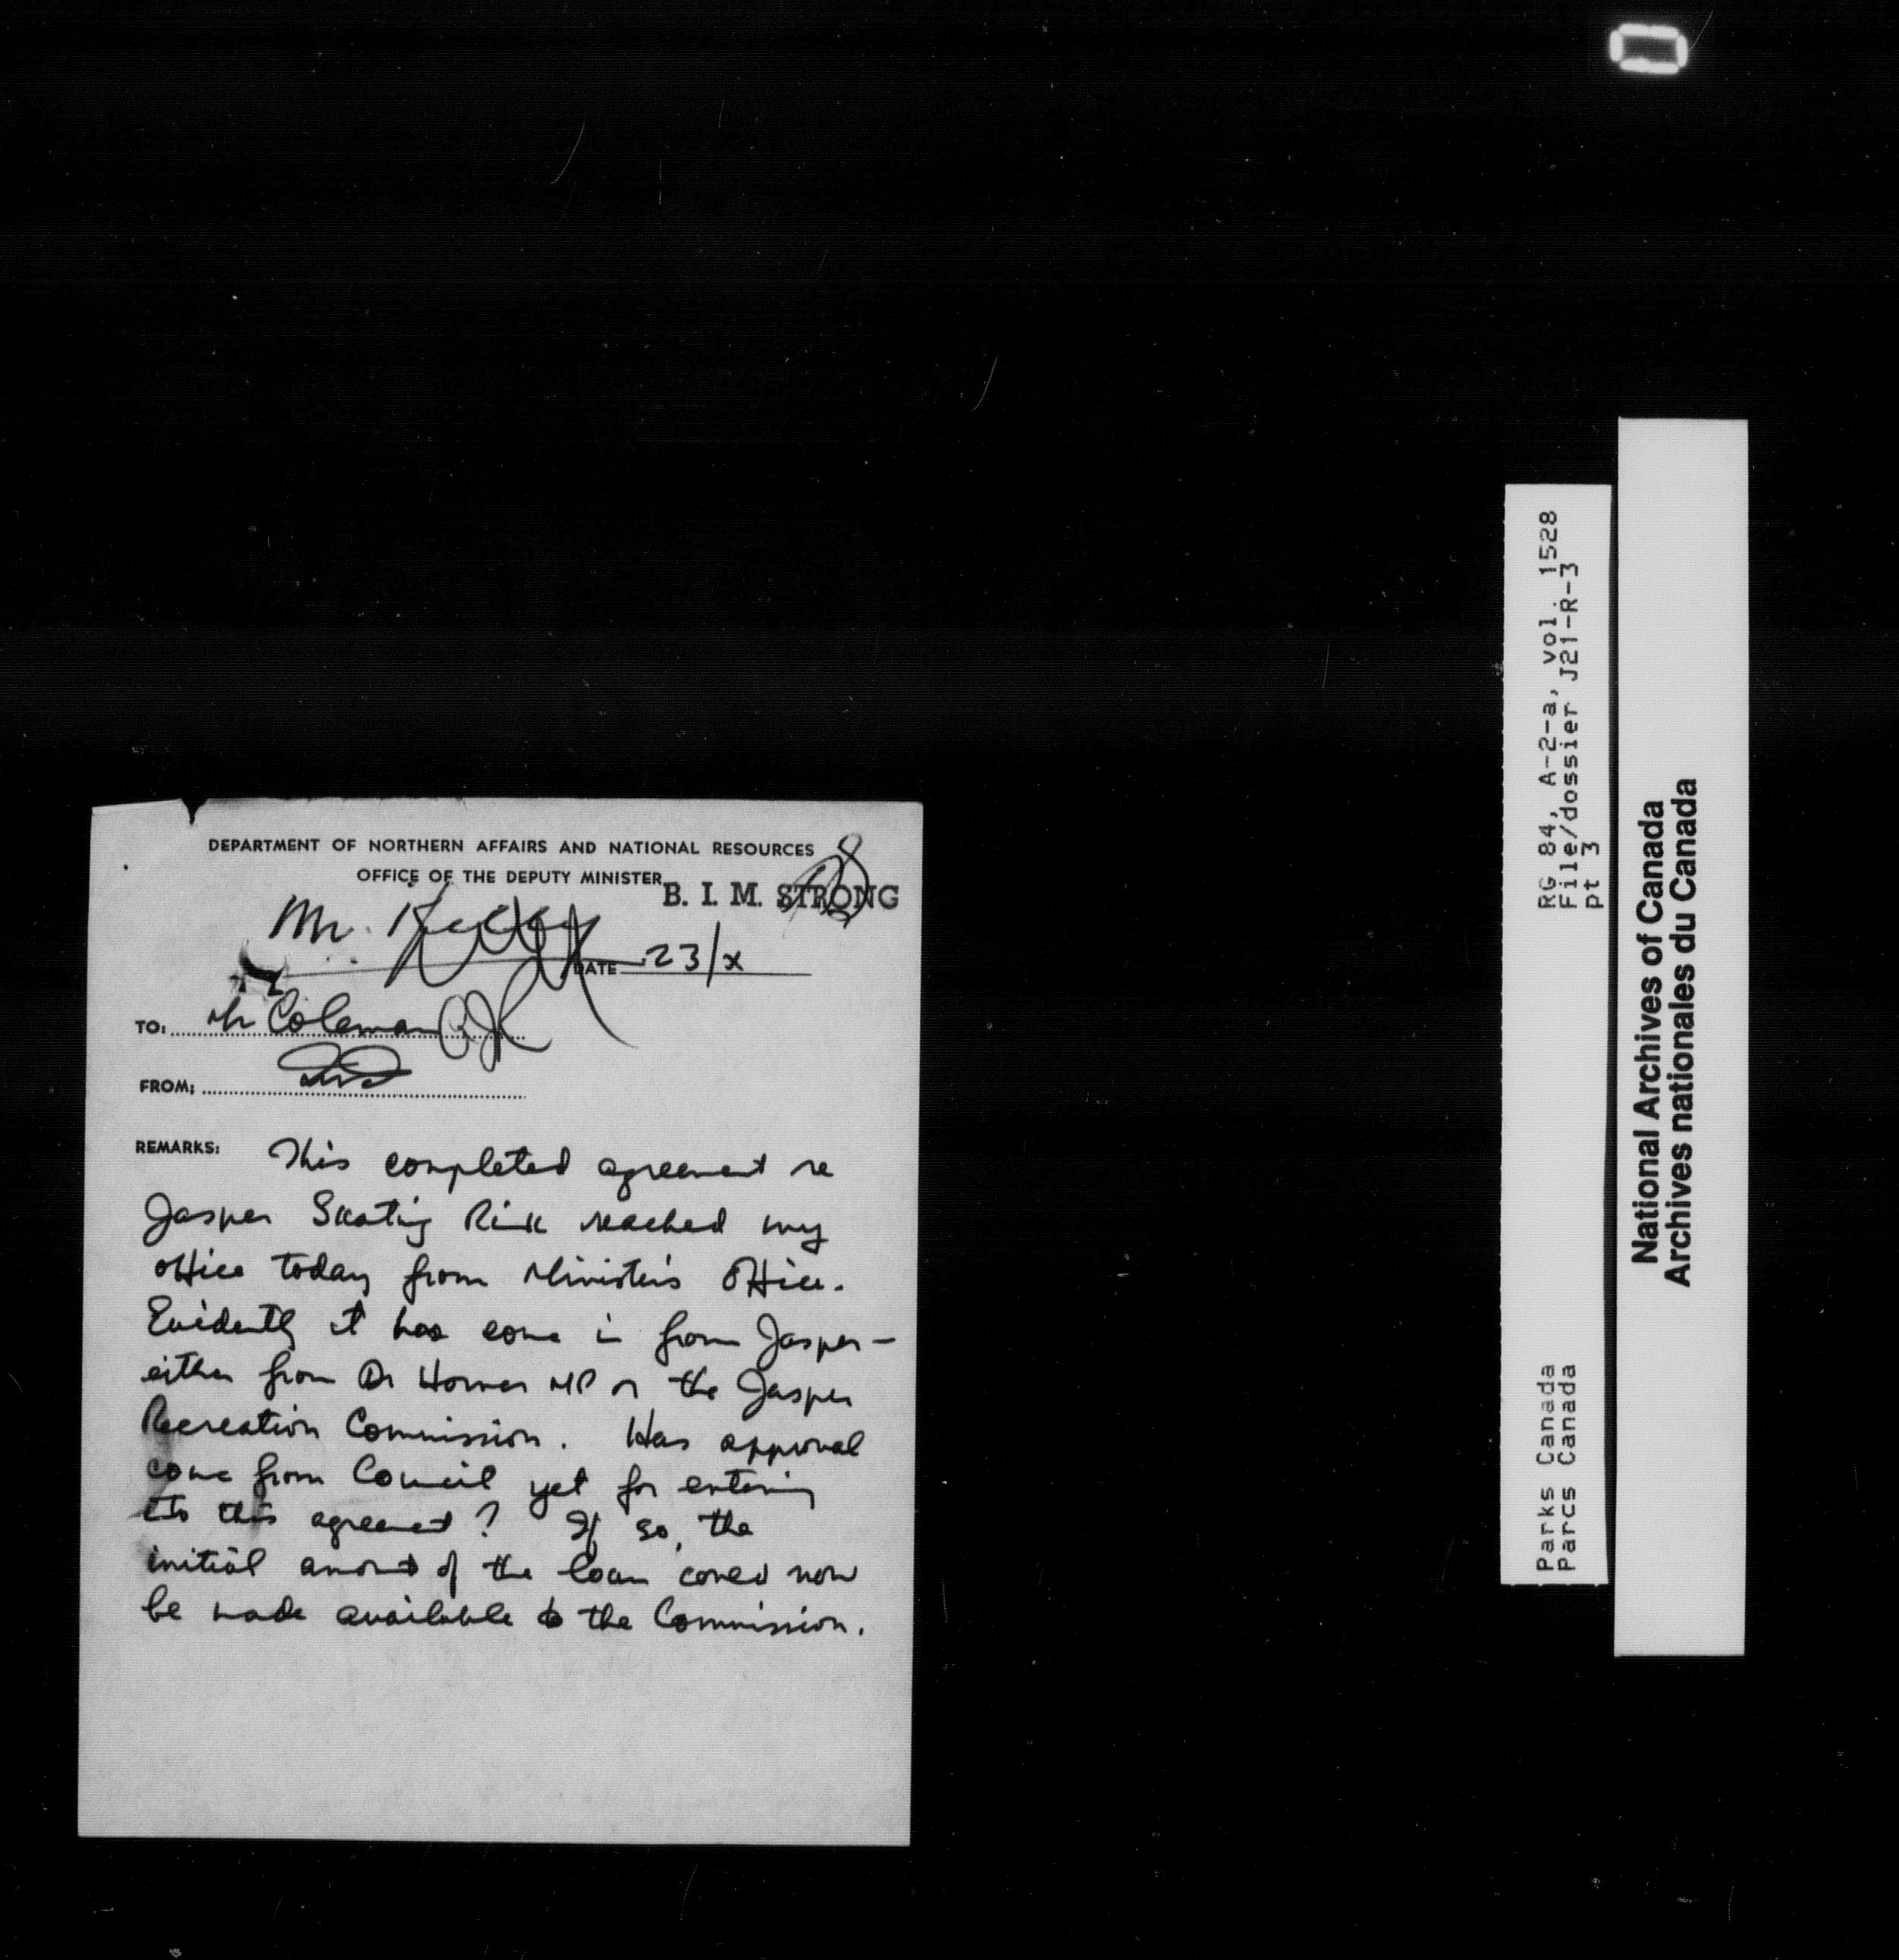 DEPARTMENT OF NORTHERN AFFAIRS AND NATIONAL RESOURCES
OFFICE OF THE DEPUTY MINISTER
B. I. M. STRONG
Mr.
DATE 23/x
TO: Mr Coleman
FROM:
REMARKS: This completed agreement re
Jasper Skating Rink reached my
office today from Minister's Office.
Evidently it has come in from Jasper —
either from Dr Horner MP or the Jasper
Recreation Commission. Has approval
come from Council yet for entering
into this agreement? If so, the
initial amount of the loan could now
be made available to the Commission.
RG 84, A-2-a, vol. 1528
File/dossier J21-R-3
pt 3
Parks Canada
Parcs Canada
National Archives of Canada
Archives nationales du Canada